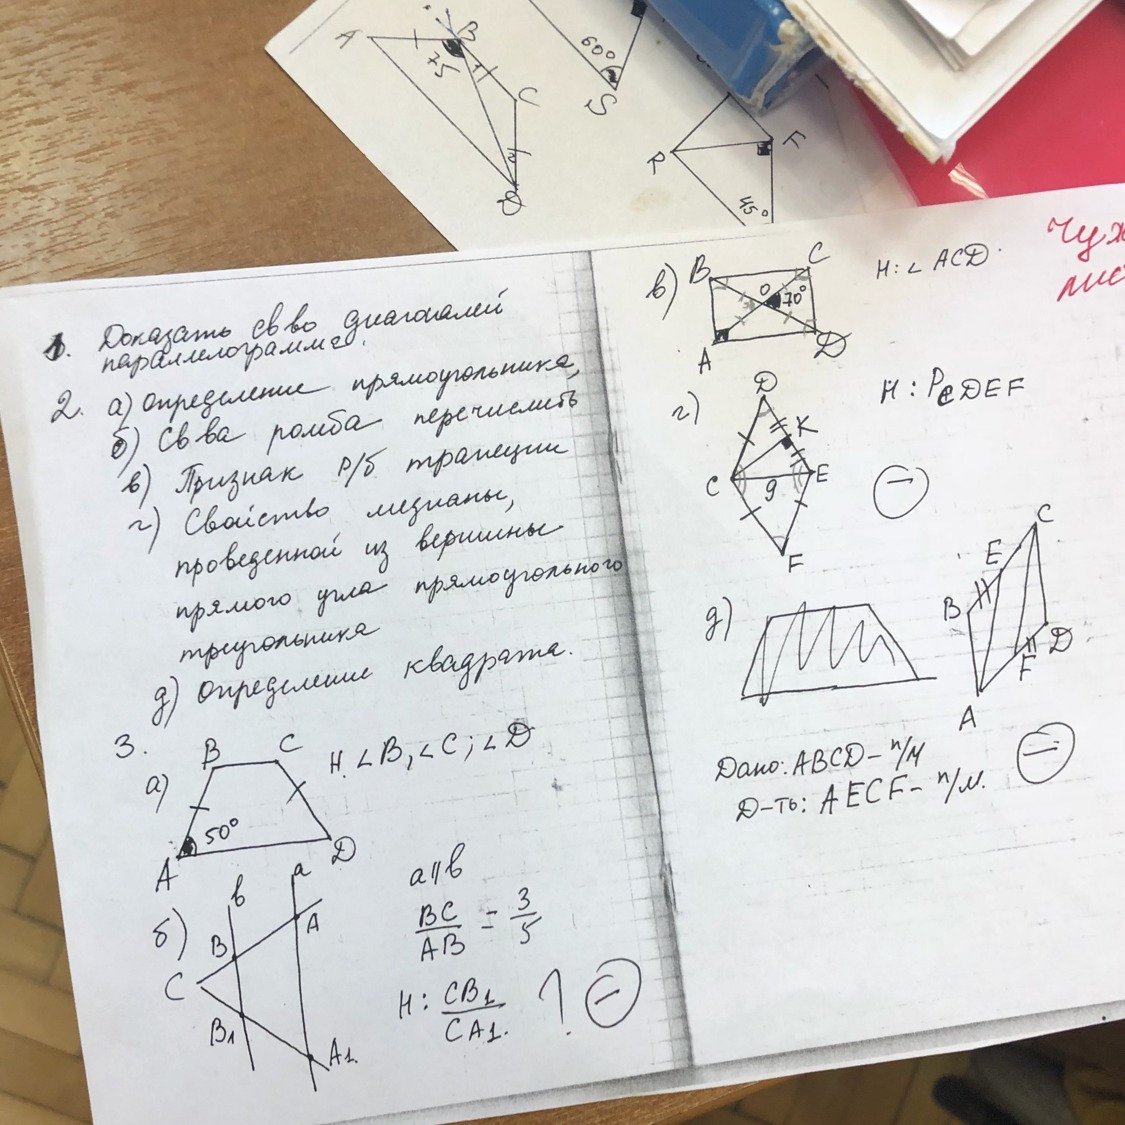 A
B
C
D
60°
S
R
F
45°
1. Доказать св во диагоналей
параллелограмма.
2. а) Определение прямоугольника,
б) Св ва ромба перечислить
в) Признак р/б трапеции
г) Свойство медианы,
проведенной из вершины
прямого угла прямоугольного
треугольника
д) Определение квадрата.
3.
а)
B
C
Н. ∠B, ∠C; ∠D
50°
A
D
б)
в
a
B
A
C
B₁
A₁.
a || в
BC/AB = 3/5
Н: CB₁/CA₁. ? −
в)
B
C
O
70°
A
D
Н: ∠ ACD.
г)
D
K
C
9
E
F
Н: PCDEF
−
д)
C
E
B
D
F
A
Дано: ABCD – п/м
Д-ть: AECF – п/м.
−